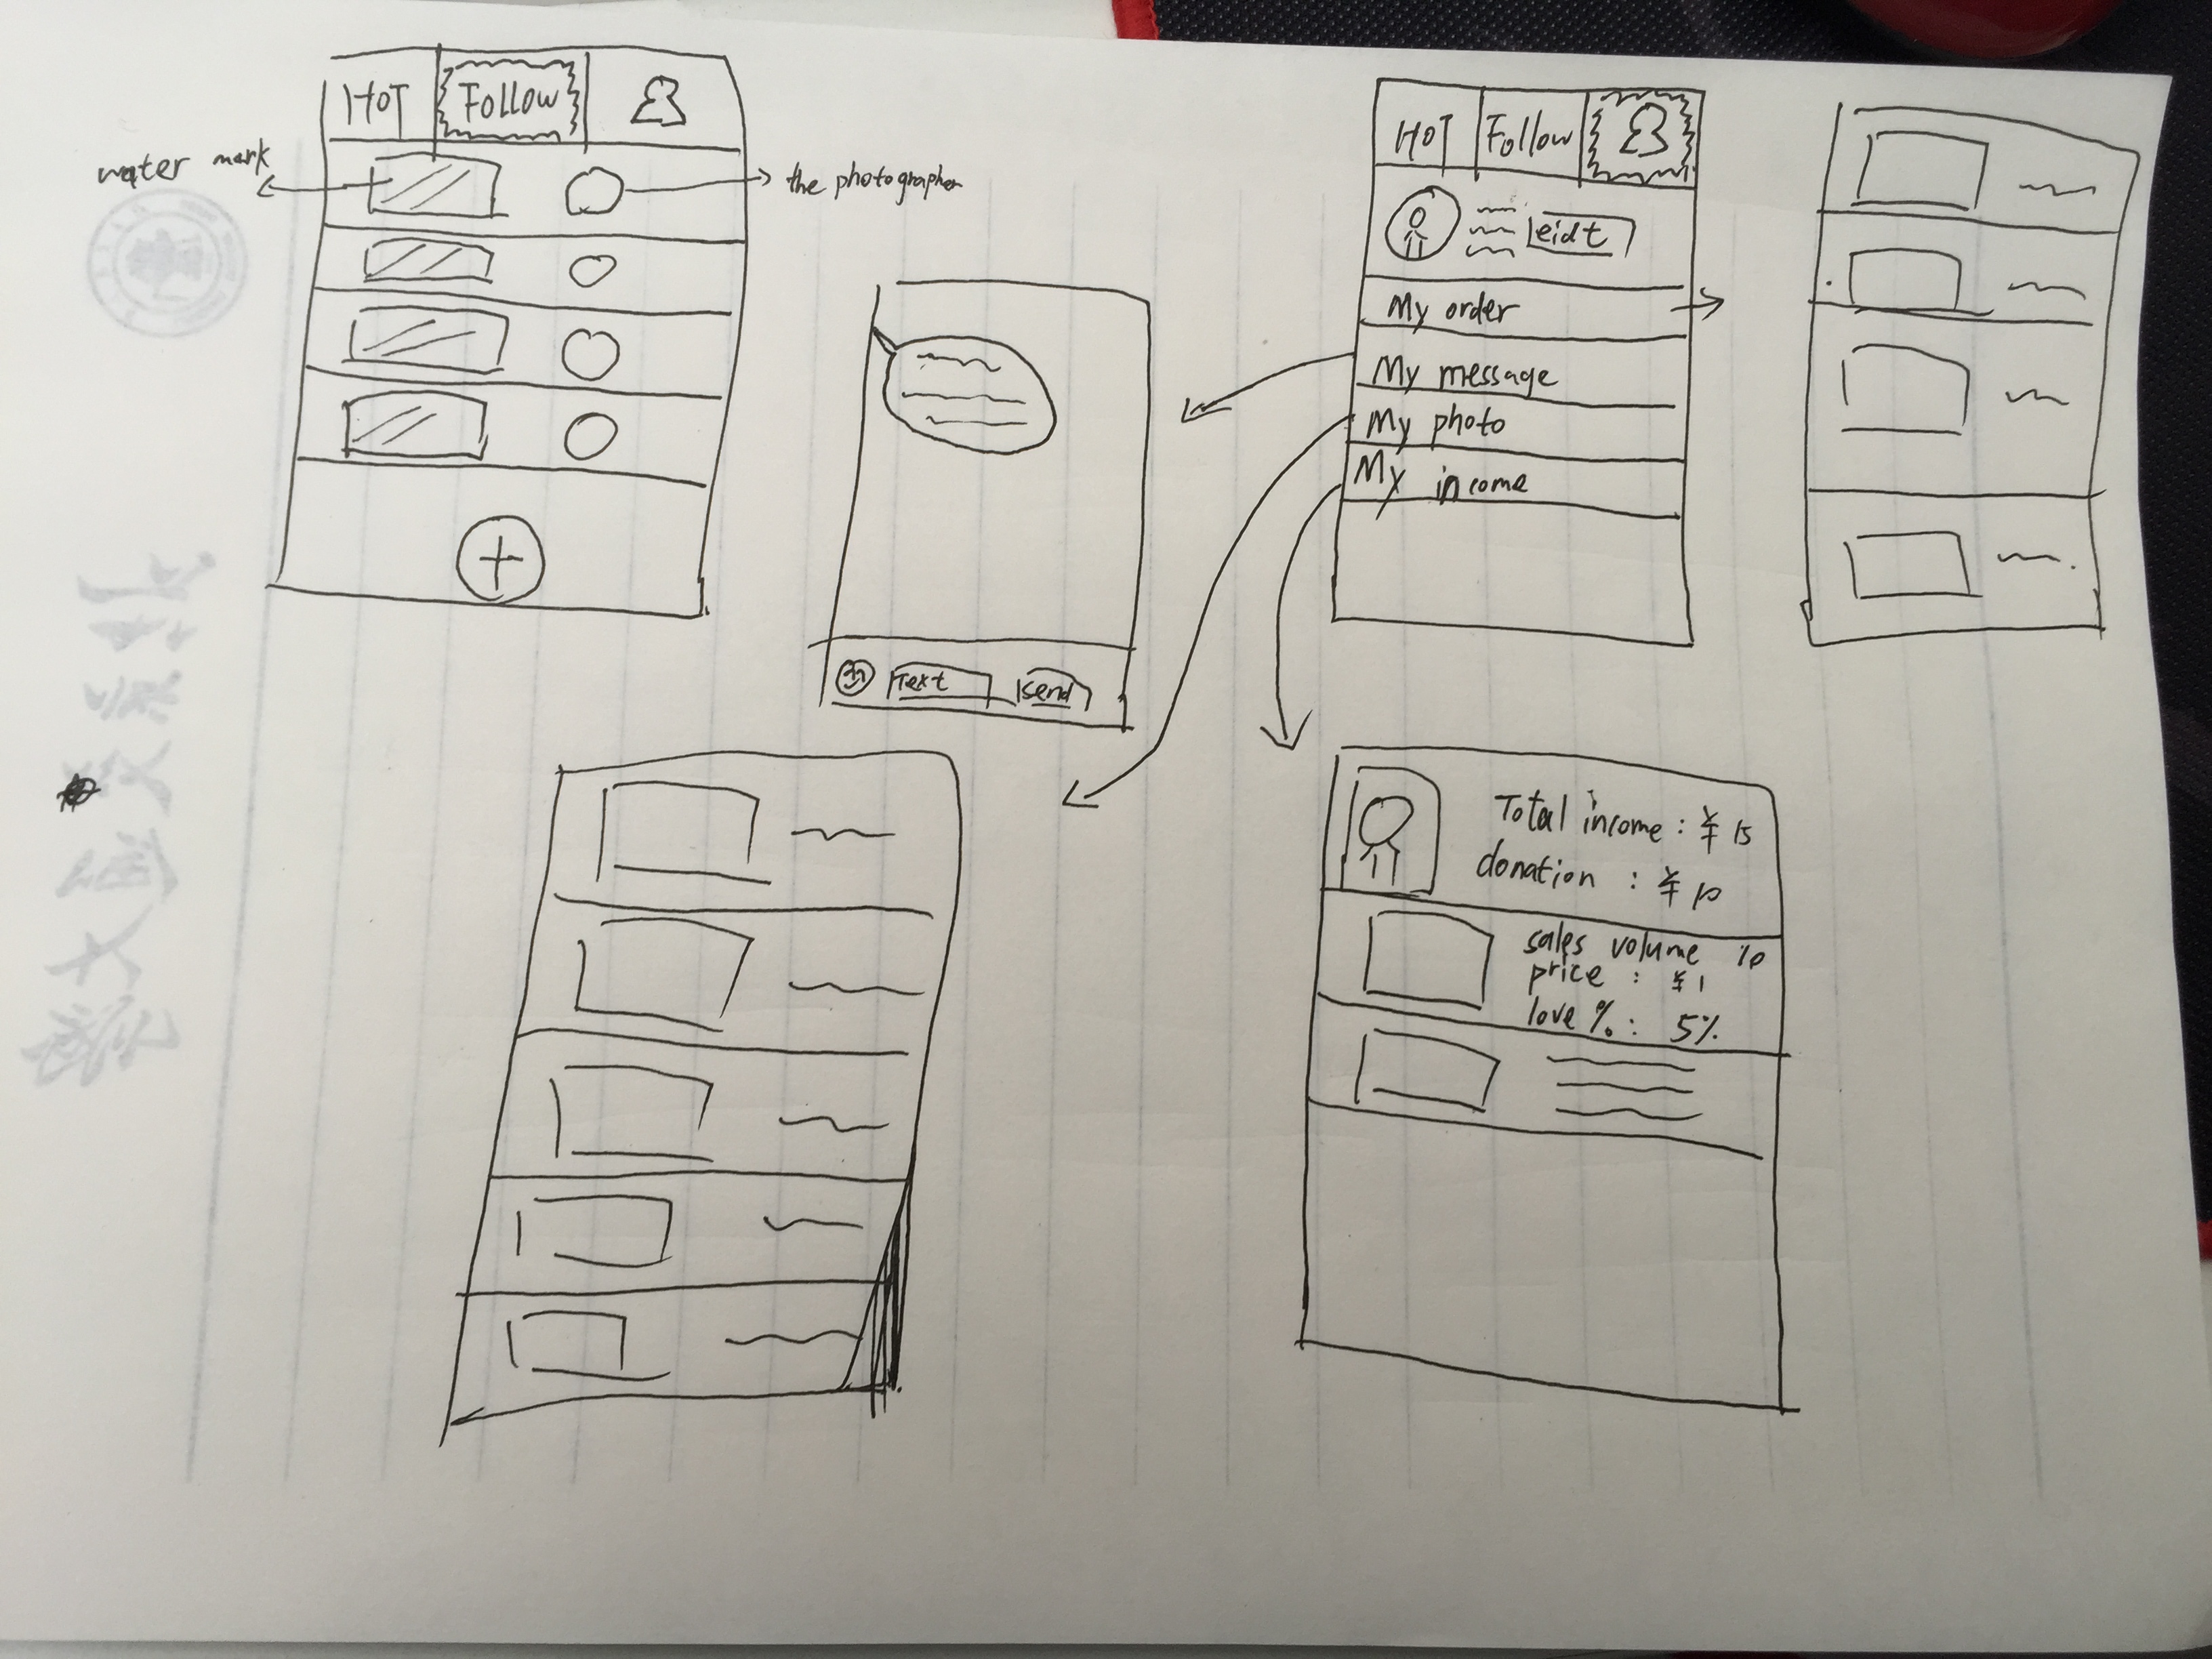 HOT Follow
water mark
the photographer
Text send
HOT Follow
eidt
My order
My message
My photo
My income
Total income : ¥ 15
donation : ¥ 10
sales volume 10
price : ¥ 1
love % : 5%